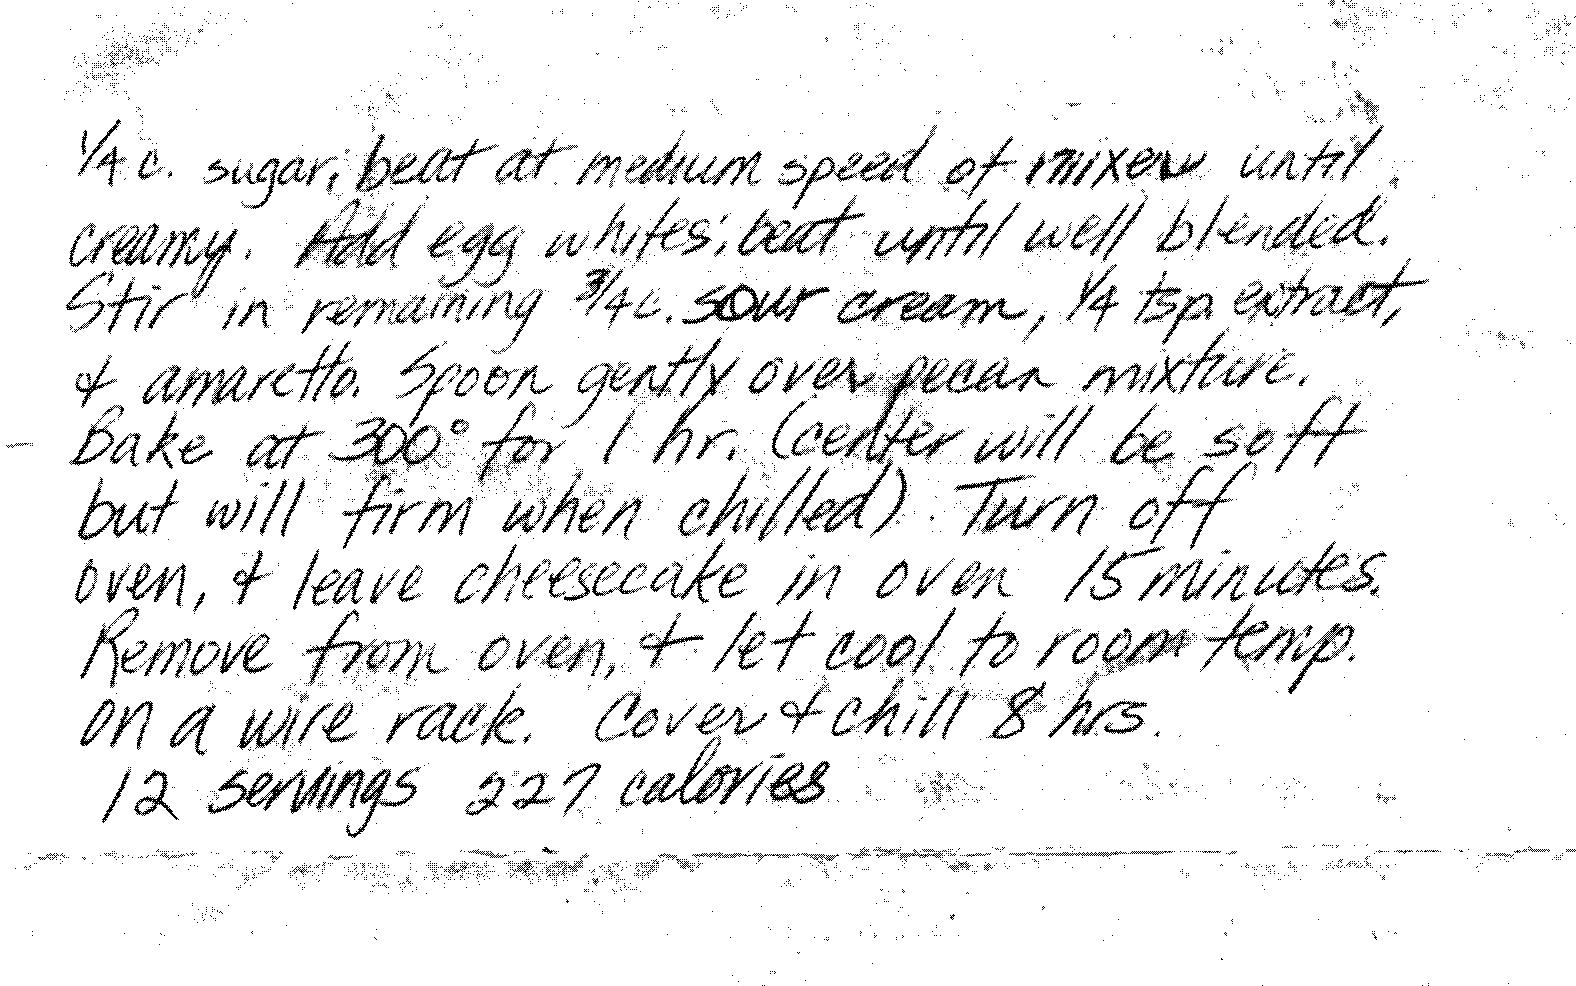 1/4 c. sugar; beat at medium speed of mixer until
creamy. Add egg whites; beat until well blended.
Stir in remaining 3/4 c. sour cream, 1/4 tsp. extract,
& amaretto. Spoon gently over pecan mixture.
Bake at 300° for 1 hr. (center will be soft
but will firm when chilled). Turn off
oven, & leave cheesecake in oven 15 minutes.
Remove from oven, & let cool to room temp.
on a wire rack. Cover & chill 8 hrs.
12 servings 227 calories